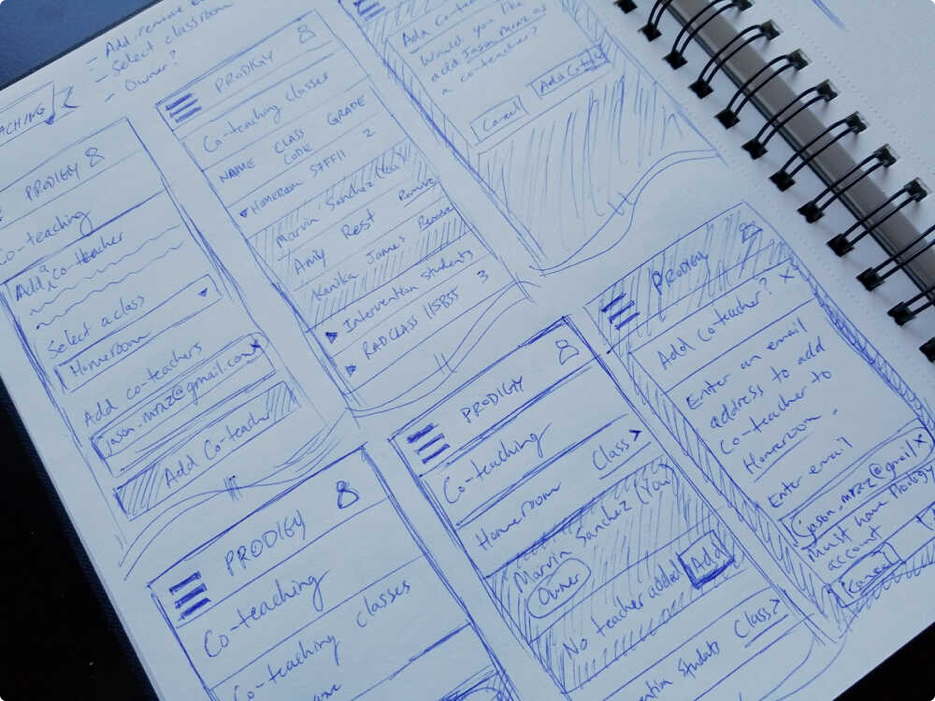 - Add remove
- Select classroom
- Owner?
PRODIGY
Co-teaching
Add a co-teacher
Select a class
Homeroom
Add co-teachers
jason.mraz@gmail.com x
Add Co-Teacher
PRODIGY
Co-teaching classes
NAME CLASS CODE GRADE
Homeroom 2
Marvin Sanchez (You)
Amy Rest Remove
Kenika James Remove
Intervention Students
RADCLASS 115BST 3
Would you like
add Jason Mraz as
a co-teacher?
Cancel
PRODIGY
Co-teaching
Co-teaching classes
PRODIGY
Co-teaching
Homeroom Class >
Marvin Sanchez (You)
Owner
No teacher added Add
Students Class >
PRODIGY
Add Co-teacher? x
Enter an email
address to add
Co-teacher to
Homeroom.
Enter email
jason.mraz@gmail x
Must have Prodigy
account
Cancel